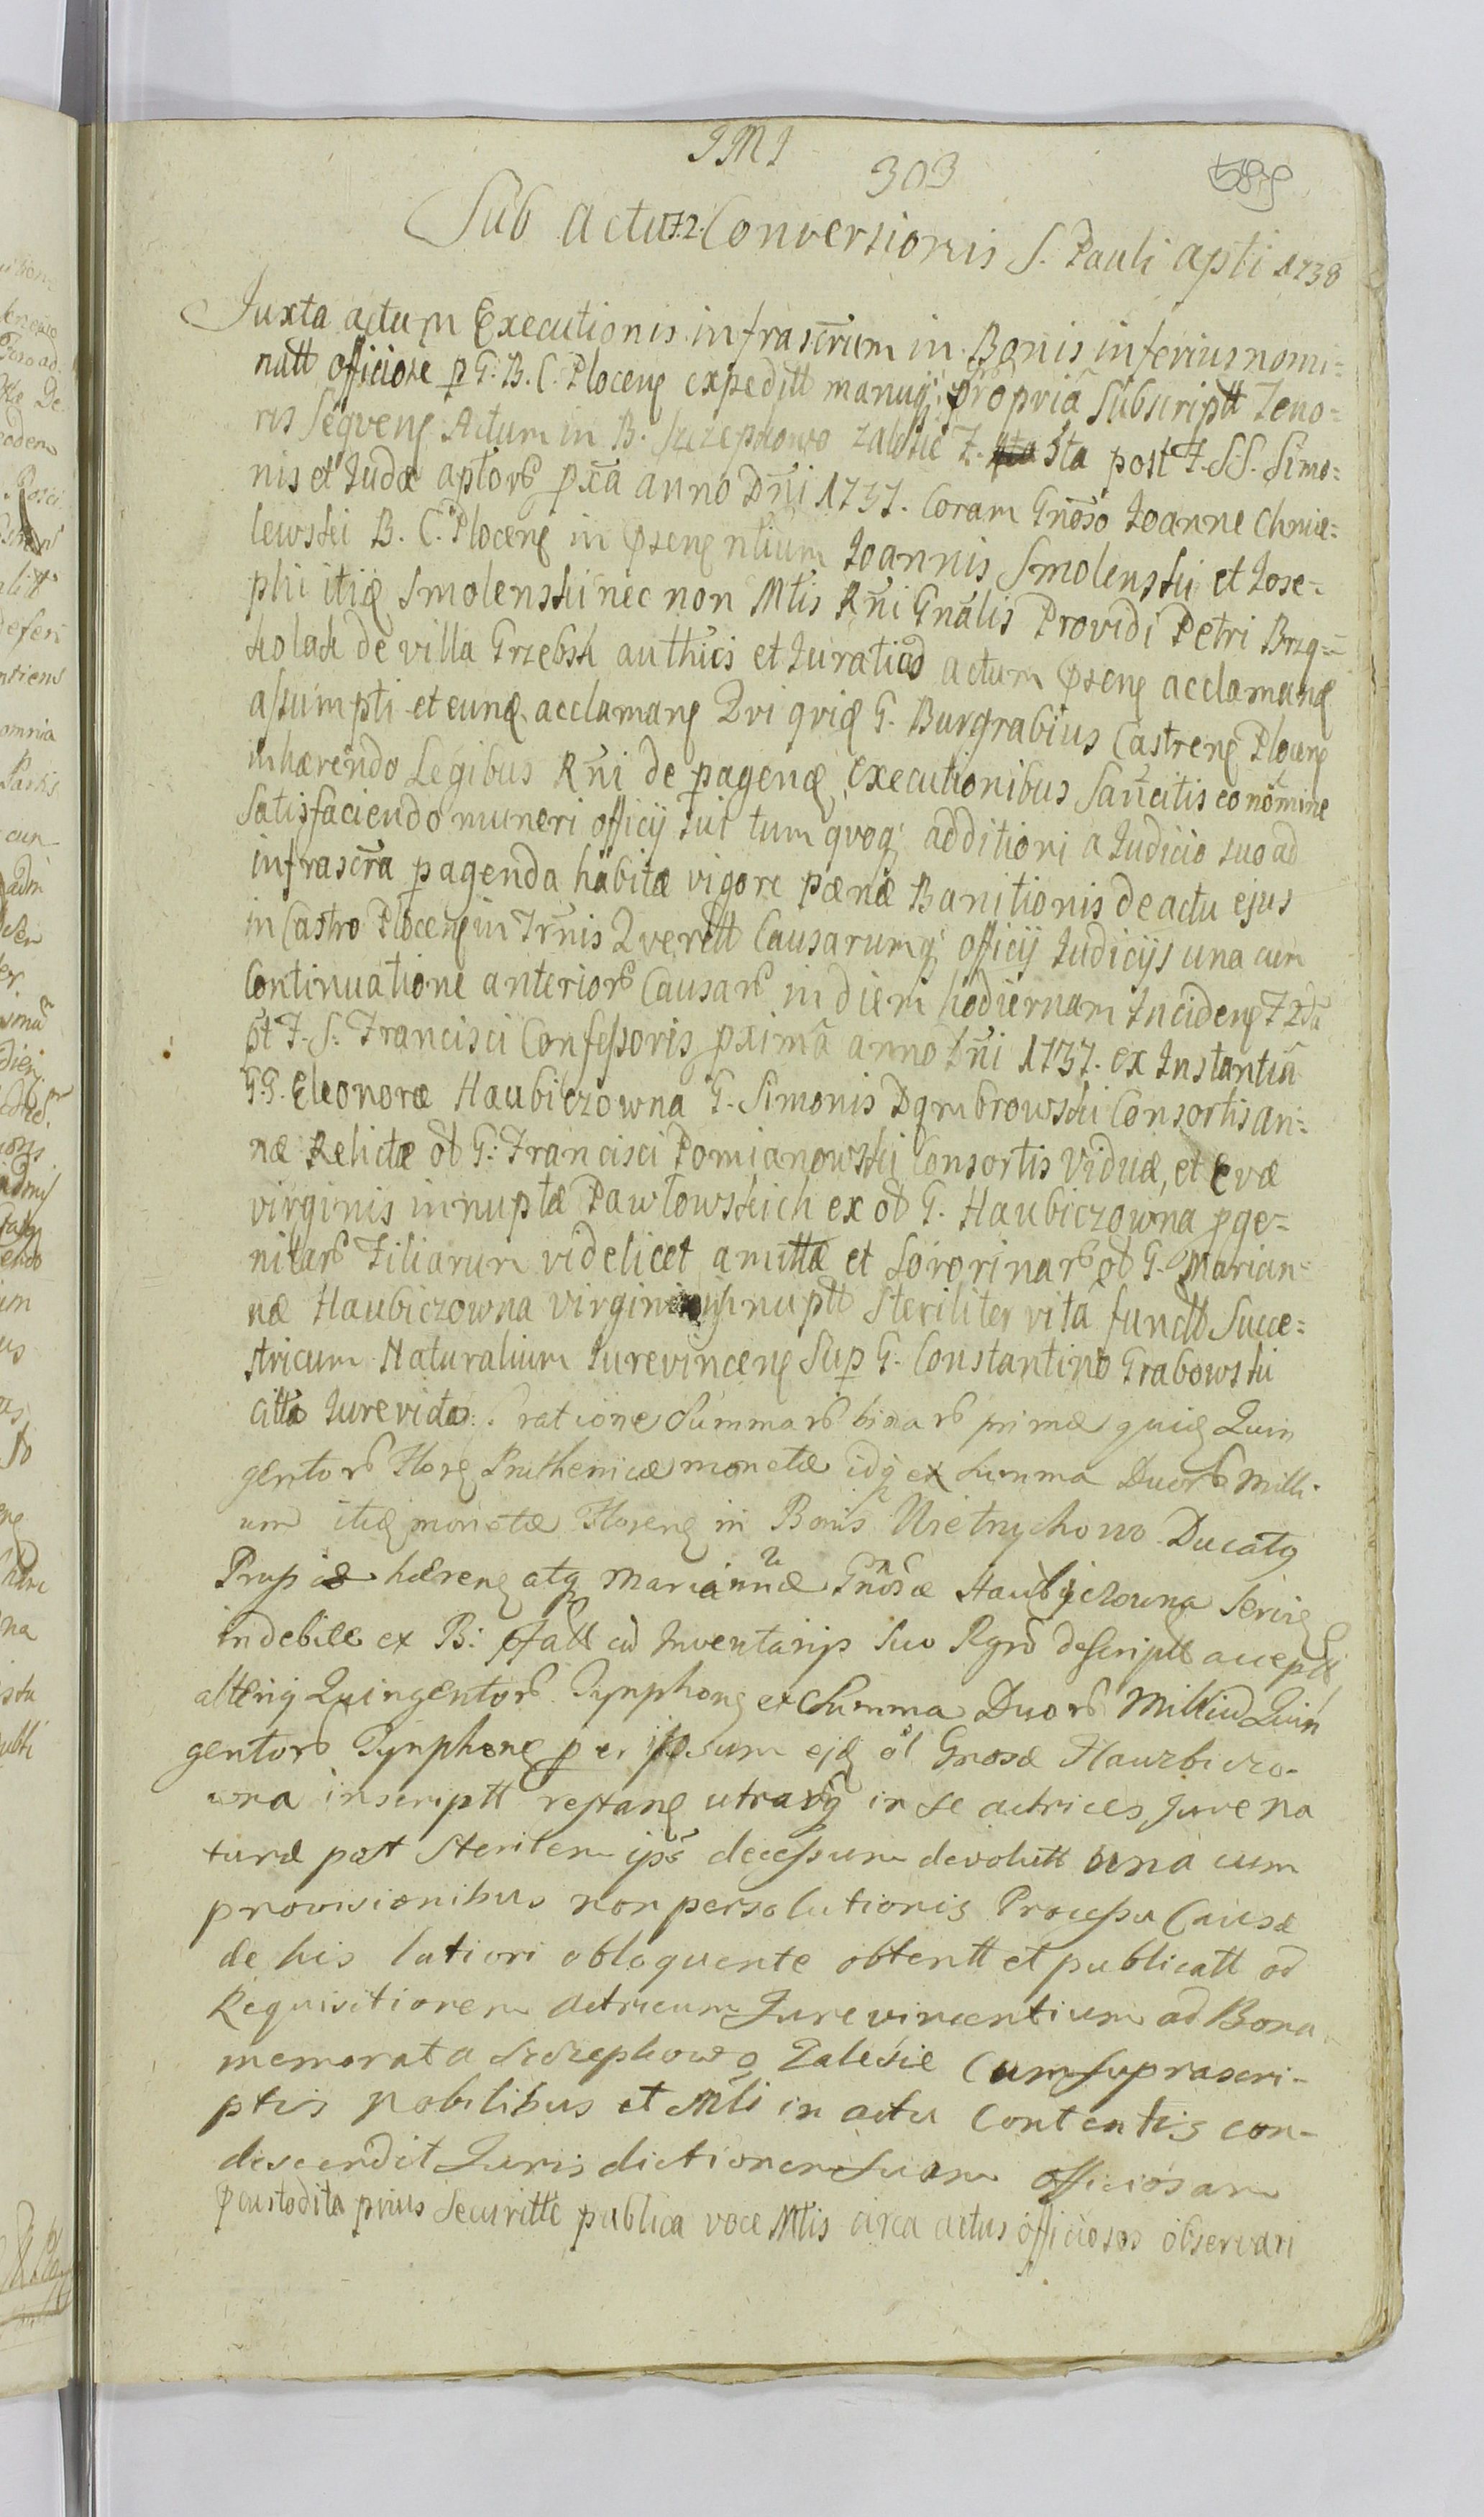 JMJ
303
Sub Actu F. 2. Conversionis S. Pauli apti 1738
Juxta actum Executionis infrascrum in Bonis inferius nomi=
natt officiose p G. B. C. Plocen expeditt manuq propria Subscriptt Teno=
ris Sequens Actum in B. Szczepkowo Zalesie F. 5ta post F. S.S. Simo=
nis et Judæ aptorb pxa anno Dni 1737. Coram Gnoso Joanne Chmie=
lewski B. C. Plocen in psen nlium Joannis Smolenski et Jose=
phi itid Smolenski nec non Mtis Rni Gnalis Providi Petri Brzę=
kolak de villa Grzebsk authici et Jurati ad actum psen acclaman
assumpti et eund acclaman Qui quid G. Burgrabius Castren Plocen
inhærendo Legibus Rni de pagend executionibus Sancitis eo nomine
Satisfaciendo muneri officij sui tum quoq additioni a Judicio suo ad
infrascra pagenda habitæ vigore pænæ Banitionis de actu ejus
in Castro Plocen in Trnis Querell Causarumq officij Judicijs una cum
Continuatione anteriorb Causarb in diem hodiernam Inciden F 2da
pt F. S. Francisci Confessoris pxima anno Dni 1737. ex Instantia
G.G. Eleonoræ Haubiczowna G. Simonis Dąmbrowski Consortis an=
næ Relictæ ol G. Francisci Pomianowski Consortis Viduæ, et Evæ
virginis innuptæ Pawłowskich ex ol G. Haubiczowna pge=
nitarb Filiarum videlicet amittæ et Sororinarb ol G. Marian=
næ Haubiczowna virginis innuptt Steriliter vita functt Succe=
stricum Naturalium Jurevincen Sup G. Constantino Grabowski
citto Jurevicto: ratione Summarb binarb primæ quid Quin
gentorb Floren Pruthenicæ monetæ idq ex Summa Duorb Milli
um itid monetæ Floren in Bonis Nietrychowo Ducatq
Prusiæ hæren atq Mariannæ Gnosæ Haubiczowna Servis
indebite ex B: pfatt ad Inventarip suo Rgro descriptt acceptt
alteriq Quingentorb Tynphon ex Summa Duorb Milliu Quin
gentorb Tynphon per ipsum ejd ol Gnosæ Haubiczo-
wna inscriptt restan utraq in se actrices Jure na
turæ post Sterilem ips decessum devolutt una cum
provisionibus non persolutionis Processu Causæ
de his latiori obloquente obtentt et publicatt ad
Requisitionem Actricum Jurevincentium ad Bona
memorata Szczepkowo Zalesie Cum suprascri-
ptis Nobilibus et Mli in actu Contentis con-
descendit Jurisdictionem suam officiosam
pcustodita prius Securitte publica voce Mtis circa actus officiosos observari